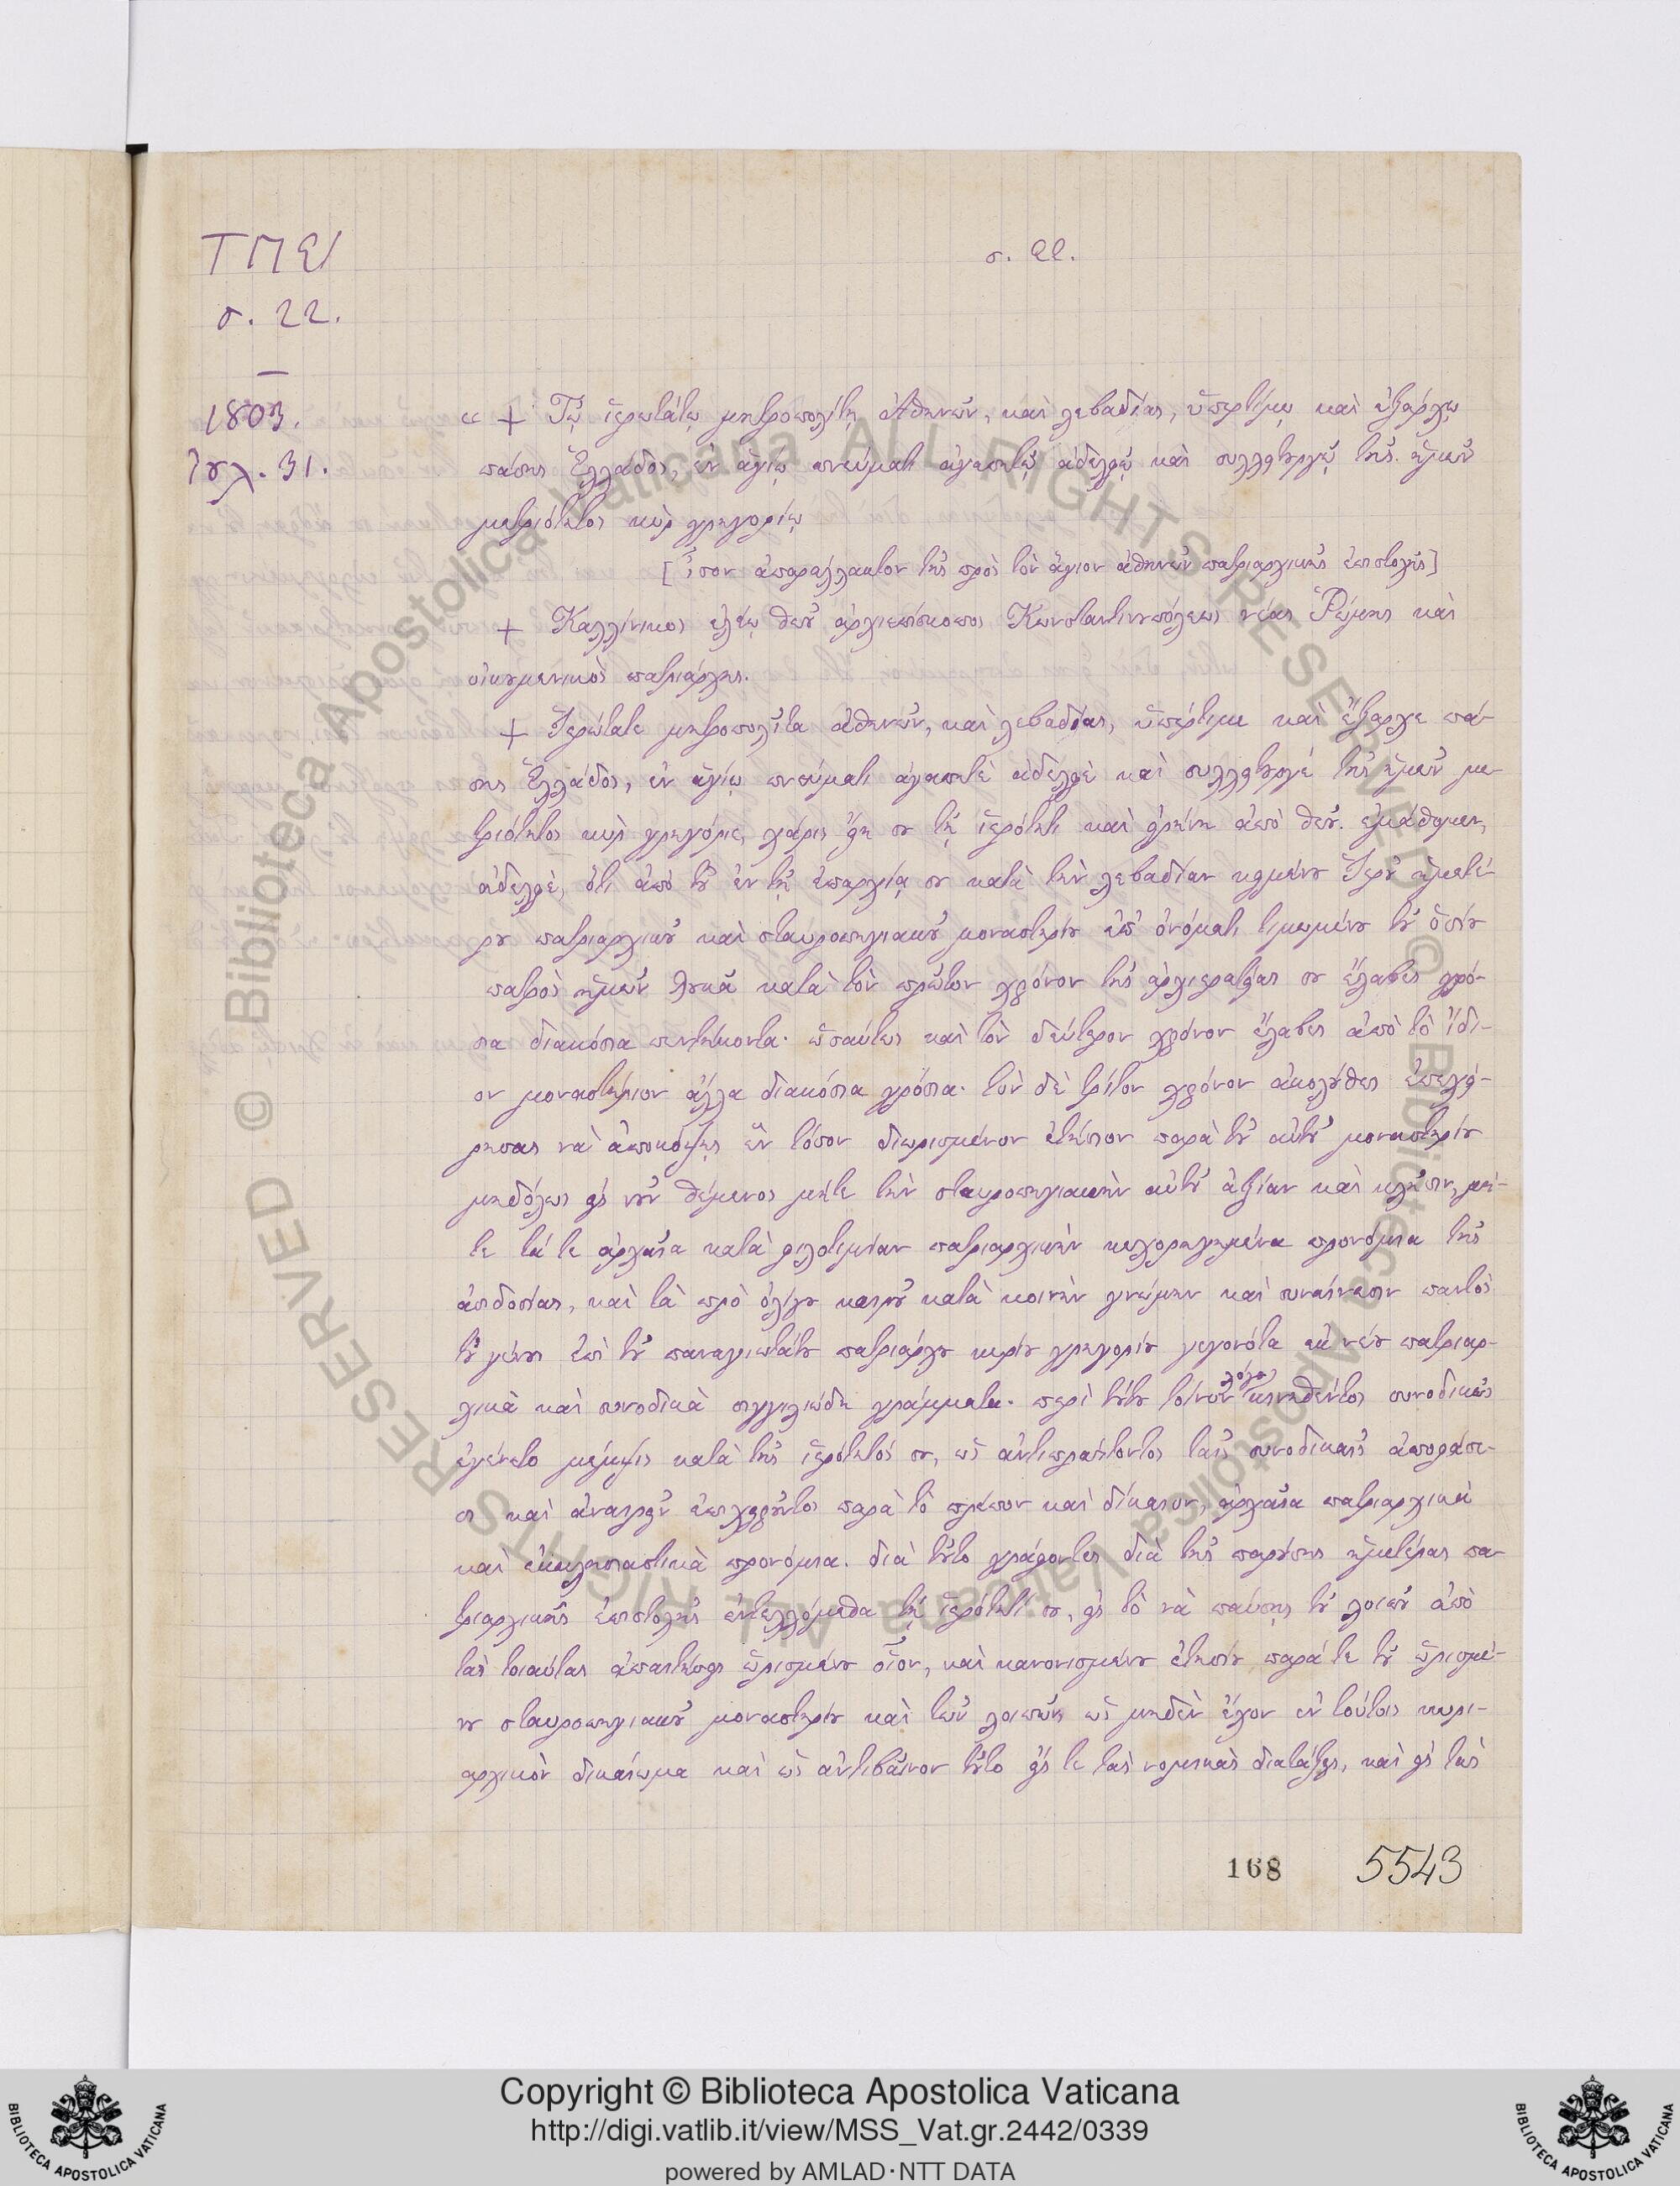 ΤΠΕ΄
σ. 22.
σ. 22.
1803.
Ἰουλ. 31.
« + Τῷ ἱερωτάτῳ μητροπολίτῃ Ἀθηνῶν, καὶ λεβαδίας, ὑπερτίμῳ καὶ ἐξάρχῳ
πάσης Ἑλλάδος, ἐν ἁγίῳ πνεύματι ἀγαπητῷ ἀδελφῷ καὶ συλλειτουργῷ τῆς ἡμῶν
μετριότητος κὺρ γρηγορίῳ
[Ἶσον ἀπαράλλακτον τῆς πρὸς τὸν ἅγιον ἀθηνῶν πατριαρχικῆς ἐπιστολῆς]
+ Καλλίνικος ἐλέῳ θεοῦ ἀρχιεπίσκοπος Κωνσταντινουπόλεως νέας Ῥώμης καὶ
οἰκουμενικὸς πατριάρχης.
+ Ἱερώτατε μητροπολῖτα ἀθηνῶν, καὶ λεβαδίας, ὑπέρτιμε καὶ ἔξαρχε πά-
σης Ἑλλάδος, ἐν ἁγίῳ πνεύματι ἀγαπητὲ ἀδελφὲ καὶ συλλειτουργὲ τῆς ἡμῶν με-
τριότητος κὺρ γρηγόριε, χάρις εἴη σου τῇ ἱερότητι καὶ εἰρήνη ἀπὸ θεοῦ. ἐμάθομεν,
ἀδελφὲ, ὅτι ἀπὸ τοῦ ἐν τῇ ἐπαρχίᾳ σου κατὰ τὴν λεβαδίαν κειμένου Ἱεροῦ ἡμετέ-
ρου πατριαρχικοῦ καὶ σταυροπηγιακοῦ μοναστηρίου ἐπ' ὀνόματι τιμωμένου τοῦ ὁσίου
πατρὸς ἡμῶν λουκᾶ κατὰ τὸν πρῶτον χρόνον τῆς ἀρχιερατείας σου ἔλαβες γρό-
σια διακόσια πεντήκοντα· ὡσαύτως καὶ τὸν δεύτερον χρόνον ἔλαβες ἀπὸ τὸ ἴδι-
ον μοναστήριον ἄλλα διακόσια γρόσια· τὸν δὲ τρίτον χρόνον ἀκολούθως ἐπεχεί-
ρησας νὰ ἀποκόψῃς ἓν τόσον διωρισμένον ἐτήσιον παρὰ τοῦ αὐτοῦ μοναστηρίου
μηδόλως εἰς νοῦν θέμενος μήτε τὴν σταυροπηγιακὴν αὐτοῦ ἀξίαν καὶ κλῆσιν, μή-
τε τά τε ἀρχαῖα κατὰ φιλοτιμίαν πατριαρχικὴν κεχορηγημένα προνόμια τῆς
ἀσυδοσίας, καὶ τὰ πρὸ ὀλίγου καιροῦ κατὰ κοινὴν γνώμην καὶ συναίνεσιν παντὸς
τοῦ γένους ἐπὶ τοῦ παναγιωτάτου πατριάρχου κυρίου γρηγορίου γεγονότα ἐκ νέου πατριαρ-
χικὰ καὶ συνοδικὰ σιγγιλιώδη γράμματα. περὶ τούτου τοίνυν λόγου κινηθέντος συνοδικῶς
ἐγένετο μέμψις κατὰ τῆς ἱερότητός σου, ὡς ἀντιπράττοντος ταῖς συνοδικαῖς ἀποφάσε-
σι καὶ ἀναιρεῖν ἐπιχειροῦντος παρὰ τὸ πρέπον καὶ δίκαιον, ἀρχαῖα πατριαρχικὰ
καὶ ἐκκλησιαστικὰ προνόμια. διὰ τοῦτο γράφοντες διὰ τῆς παρούσης ἡμετέρας πα-
τριαρχικῆς ἐπιστολῆς ἐντελλόμεθα τῇ ἱερότητί σου, εἰς τὸ νὰ παύσῃς τοῦ λοιποῦ ἀπὸ
τὰς τοιαύτας ἀπαιτήσεις ὡρισμένου οἷον, καὶ κανονισμένου ἐτησίου παρά τε τοῦ ὡρισμέ-
νου σταυροπηγιακοῦ μοναστηρίου καὶ τῶν λοιπῶν ὡς μηδὲν ἔχον ἐν τούτοις κυρι-
αρχικὸν δικαίωμα καὶ ὡς ἀντιβαῖνον τοῦτο εἴς τε τὰς νομικὰς διατάξεις, καὶ εἰς τὰς
168
5543
© Biblioteca Apostolica Vaticana ALL RIGHTS RESERVED © Biblioteca Apostolica Vaticana ALL RIGHTS RESERVED
Copyright © Biblioteca Apostolica Vaticana
http://digi.vatlib.it/view/MSS_Vat.gr.2442/0339
powered by AMLAD·NTT DATA
BIBLIOTECA APOSTOLICA VATICANA
BIBLIOTECA APOSTOLICA VATICANA